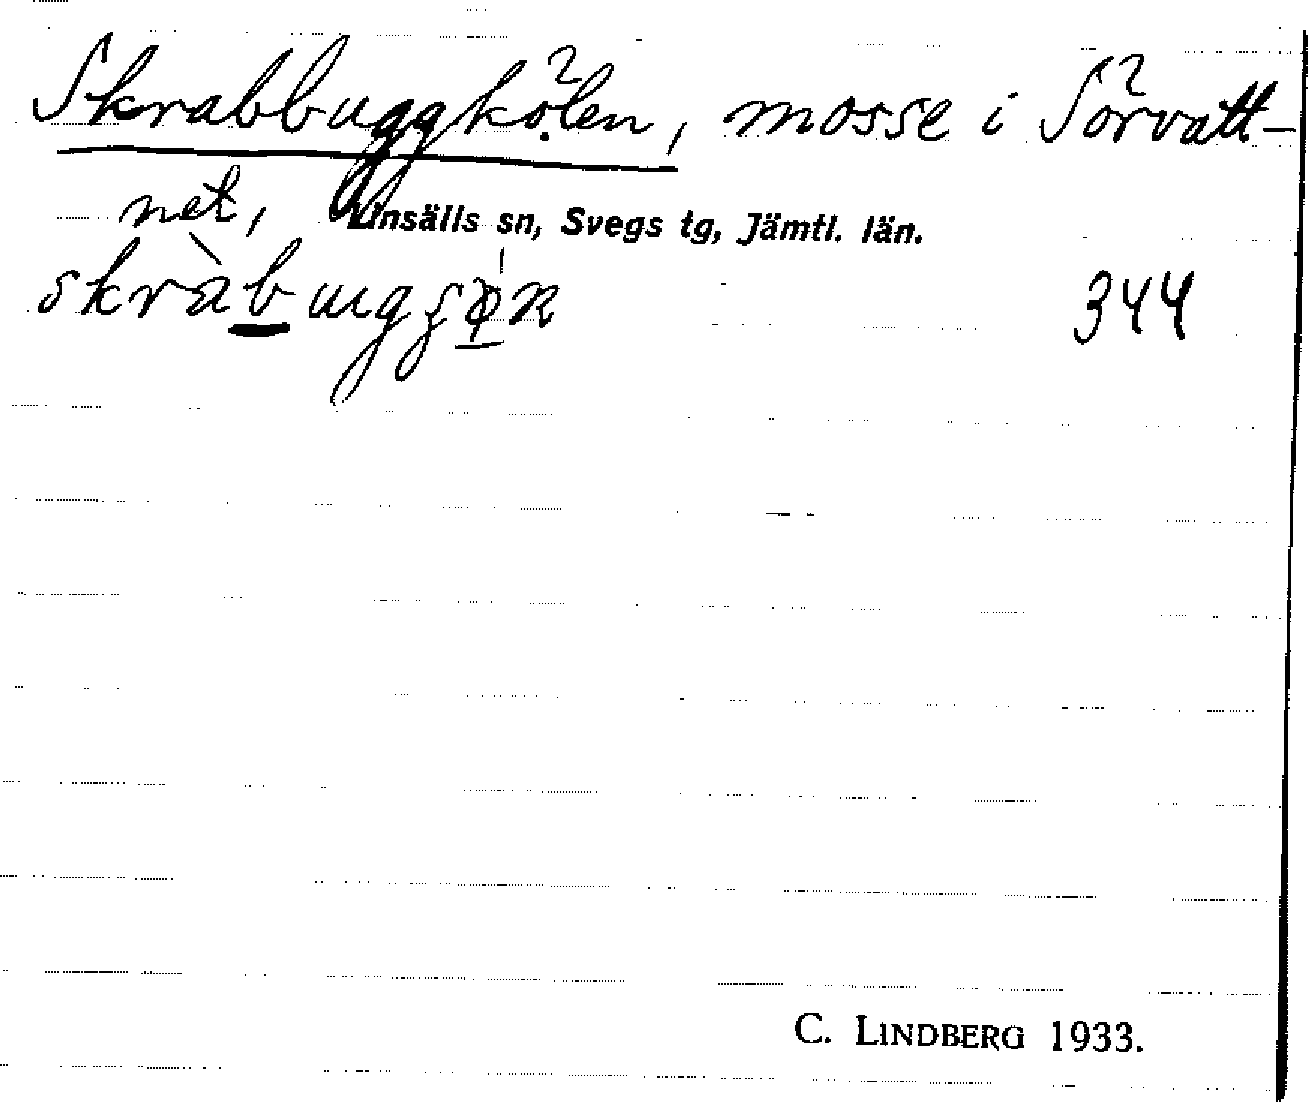 Skrabbuggkölen, mosse i Sörvatt-
net,
Linsälls sn, Svegs tg, Jämtl. län.
344
C. LINDBERG 1933.